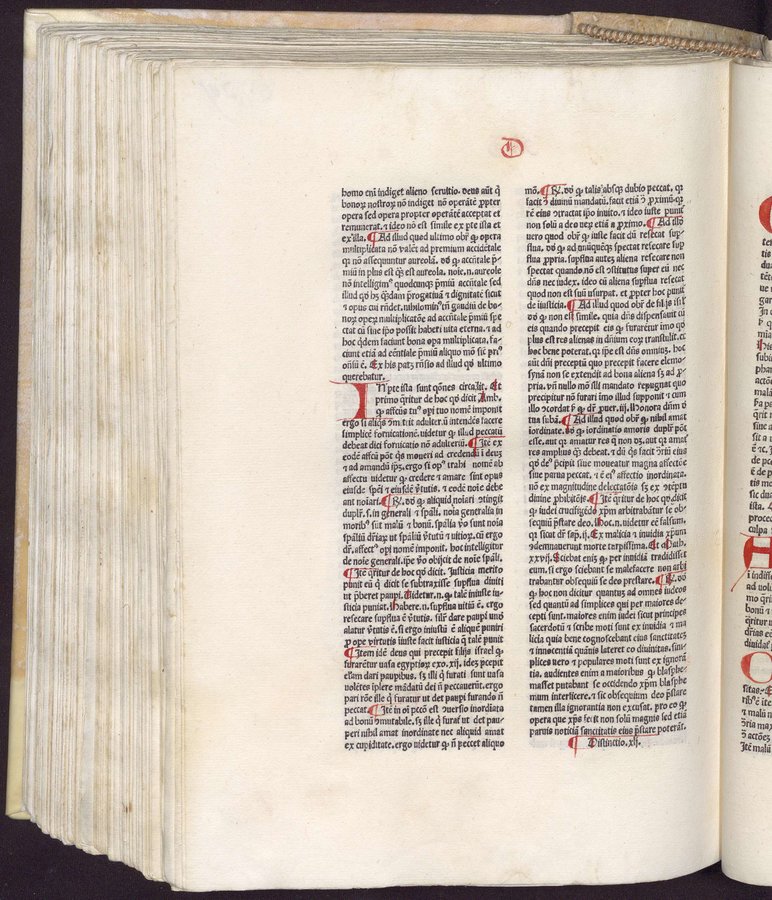 D
homo eni͂ indiget alieno seruitio. deus aut͂ q͂
bonoꝝ nostroꝝ nō indiget nō operāte ꝓpter
opera sed opera propter operātē acceptat et
remunerat. ⁊ ideo nō est simile ex pte ista et
ex illa. ¶ Ad illud quod ultimo obr̄ ꝙ opera
multiplicata nō valēt ad premium accidētale
ꝙ nō assequuntur aureolā. vō ꝙ accn̄tale p̄
miū in plus est qͣꝫ est aureola. noīe. n. aureole
nō intelligimꝰ quodcunqꝫ p̄miū accn̄tale sed
illud qḋ hꝫ qͣndam ꝓrogatiuā ⁊ dignitatē sicut
⁊ opus cui rn̄det. nihilominꝰ tn̄ gaudiū de bo
noꝝ opeꝝ multiplicatōe ad accn̄tale p̄miū spe
ctat cū sine ip̄o possit haberi uita eterna. ⁊ ad
hoc qͥdem faciunt bona opa multiplicata, fa
ciunt etiā ad eēntiale p̄miū aliquo mō sic̄ priꝰ
oīsū ē. Ex his patꝫ rn̄sio ad illud qḋ ultimo
querebatur.
IN pte ista sunt qōnes circa lit̄. Et
primo qͥritur de hoc qḋ dicit Amb.
ꝙ affectꝰ tuꝰ opi tuo nomē imponit
ergo si aliqͥs ōm̄ittit adulteriū intendēs facere
simplicē fornicationē. uidetur ꝙ illud peccatū
debeat dici fornicatio nō adulteriū. ¶ Itē ex
eodē affcū pōt qͥs moueri ad credendū ī deuꝫ
⁊ ad amandū ip̄ꝫ. ergo si opꝰ trahi nomē ab
affectu uidetur ꝙ credere ⁊ amare sint opus
eiusdē spēi ⁊ eiusdē ṽtutis. ⁊ eodē noīe debe
ant noīari. ¶ Rͫ. vō ꝙ aliquid noīari ōtingit
duplr̄. s. in generali ⁊ sp̄ali. noīa generalia in
moribꝰ sut malū ⁊ bonū. sp̄alia ṽo sunt noīa
sp̄aliū dr̄iaꝝ ut sp̄aliū ṽtutū ⁊ uitioꝝ. cū ergo
dr̄. affectꝰ opi nomē imponit. hoc intelligitur
de noīe generali. ip̄e ṽo obijcit de noīe sp̄ali.
¶ Itē qͥritur de hoc qḋ dicit. Justicia merito
punit eū q̄ dicit se subtraxisse supflua diuiti
ut p̄beret paupi. Videtur. n. ꝙ talē iniuste iu
sticia puniat. Habere. n. supflua uitiū ē. ergo
resecare supflua ē ṽtutis. silr̄ dare paupi unō
alatur ṽtutis ē. si ergo iniustū ē aliquē puniri
ꝓ ope virtutis iuste facit iusticia q̄ talē punit
¶ Item idē deus qui precepit filijs israel ꝙ
furarētur uasa egyptioꝝ exo. xij. idez pcepit
elsam dari paupibus. sꝫ illi q̄ furati sunt uasa
volētes īplere mādatū dei n̄ peccauerūt. ergo
pari rōe ille ꝙ furatur ut det paupi furando n̄
peccat. ¶ Itē in oi pctō est ꝯuersio inordiata
ad bonū ōmutabile. sꝫ ille ꝙ furat̃ ut det pau
peri nihil amat inordinate nec aliquid amat
ex cupiditate. ergo uidetur ꝙ n̄ peccet aliquo
mō. ¶ Rͫ. vō ꝙ talis absqꝫ dubio peccat, qꝛ
facit ꝯ diuinū mandatū. facit etiā ꝯ ꝓximū. qꝛ
rē eius ꝯtractat ip̄o inuito. ⁊ ideo iuste punit̃
non solū a deo ueꝝ etiā a ꝓximo. ¶ Ad illḋ
uero quod obr̄ ꝙ iuste facit dū resecat sup
flua. vō ꝙ ad unūquēqꝫ spectat resecare sup
flua ꝓpria. supflua autēꝫ aliena resecare non
spectat quando. nō est ꝯstitutus super eū nec
dn̄s nec iudex. ideo cū aliena supflua resecat
quod non est suū usurpat. et ꝓpter hoc punit̃
de iusticia. ¶ Ad illud quod obr̄ de filijs isr̄l
vō ꝙ non est simile. quia dn̄s dispensauit cū
eis quando precepit eis ꝙ furarētur imo qḋ
plus est res alienas in dn̄ium eoꝝ transtulit. et
hoc bene poterat. qꝛ ip̄e est dn̄s omniuꝫ. hoc
aūt dn̄i preceptū quo precepit facere elemo-
synā non se extendit ad bona aliena sꝫ ad ꝓ
pria. vn̄ nullo mō illi mandato repugnat quo
precipitur nō furari imo illud supponit ⁊ cum
illo ꝯcordat ꝟ ꝙ dr̄ ꝓuer. iij. Honora dn̄m d̄
tua subā. ¶ Ad illud quod obr̄ ꝙ nihil amat
inordinate. vō ꝙ iordinatio amoris duplr̄ pōt
esse. aut qꝛ amatur res q̄ non dꝫ. aut qꝛ amat̃
res amplius qͣ debeat. ⁊ dū qͥs facit ꝯriū eius
qḋ deꝰ p̄cipit siue moueatur magna affectōe
siue parua peccat. ⁊ ē eiꝰ affectio inordinata.
nō ex magnitudine delectatōis sꝫ ex ꝯtēptu
diuine ꝓhibitōis. ¶ Itē qͥritur de hoc qḋ dicit
ꝙ iudei crucifigēdo xp̄m arbitrabātur se ob-
sequiū p̄stare deo. Hoc. n. uidetur eē falsum.
qꝛ sicut dr̄ sap. ij. Ex malicia ⁊ inuidia xp̄um
ꝯdemnauerunt morte turpissima. Et Math.
xxvij. Sciebat enī ꝙ per inuidiā tradidissēt
eum. si ergo sciebant se malefacere non arbi
trabantur obsequiū se deo prestare. ¶ Rͫ. vō
ꝙ hoc non dicitur quantuꝫ ad omnes iudeos
sed quantū ad simplices qui per maiores de-
cepti sunt. maiores enim iudei sicut principes
sacerdotū ⁊ scribe moti sunt ex inuidia ⁊ ma
licia quia bene cognoscebant eius sanctitatē
⁊ innocentiā quāuis lateret eo diuinitas. sim-
plices uero ⁊ populares moti sunt ex ignorā
tia. audientes enim a maioribus ꝙ blasphe-
masset putabant se occidendo xp̄m blasphe
mum interficere. ⁊ sic obsequium deo p̄stare
tamen illa ignorantia non excusat. pro eo ꝙ
opera que xp̄s fecit non solū magnis sed etiā
paruis noticiā sanctitatis eius p̄stare poterāt.
¶ Distinctio. xlj.